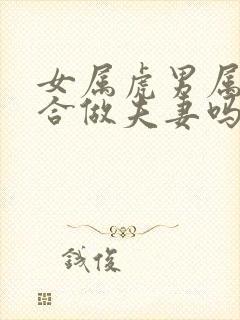 女属虎男属
合做夫妻吗
誠俊